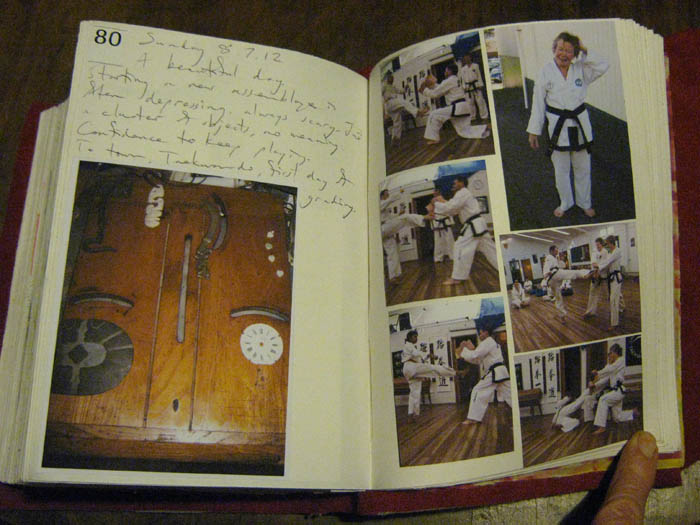 80
Sunday 8 7.12
A beautiful day.
Starting a new assemblage is
often depressing, always scary. Just
a cluster of objects, no meaning.
Confidence to keep playing.
To town, Taekwondo, first day of
grading.
跆拳道
跆拳道